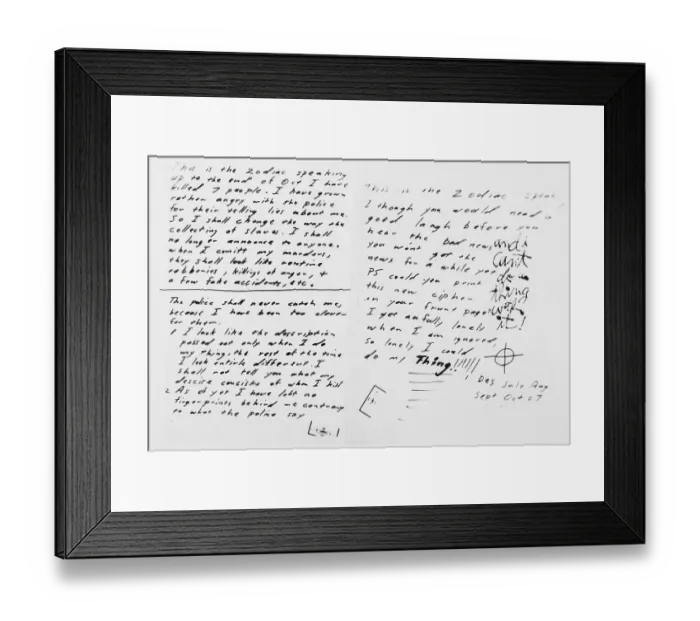 This is the Zodiac speaking
up to the end of Oct I have
killed 7 people. I have grown
rather angry with the police
for their telling lies about me.
So I shall change the way the
collecting of slaves. I shall
no longer announce to anyone.
when I comitt my murders,
they shall look like routine
robberies, killings of anger, +
a few fake accidents, etc.
The police shall never catch me,
because I have been too clever
for them.
1 I look like the description
passed out only when I do
my thing, the rest of the time
I look entirle different. I
shall not tell you what my
descise consists of when I kill
2 As of yet I have left no
fingerprints behind me contrary
to what the police say
This is the Zodiac speak
I though you would need a
good laugh before you
hear the bad news
you won't get the
news for a while yet
PS could you print
this new cipher
in your frunt page?
I get awfully lonely
when I am ignored,
so lonely I could
do my Thing!!!!!!
and i
can't
do a
thing
with
it!
Des July Aug
Sept Oct = 7